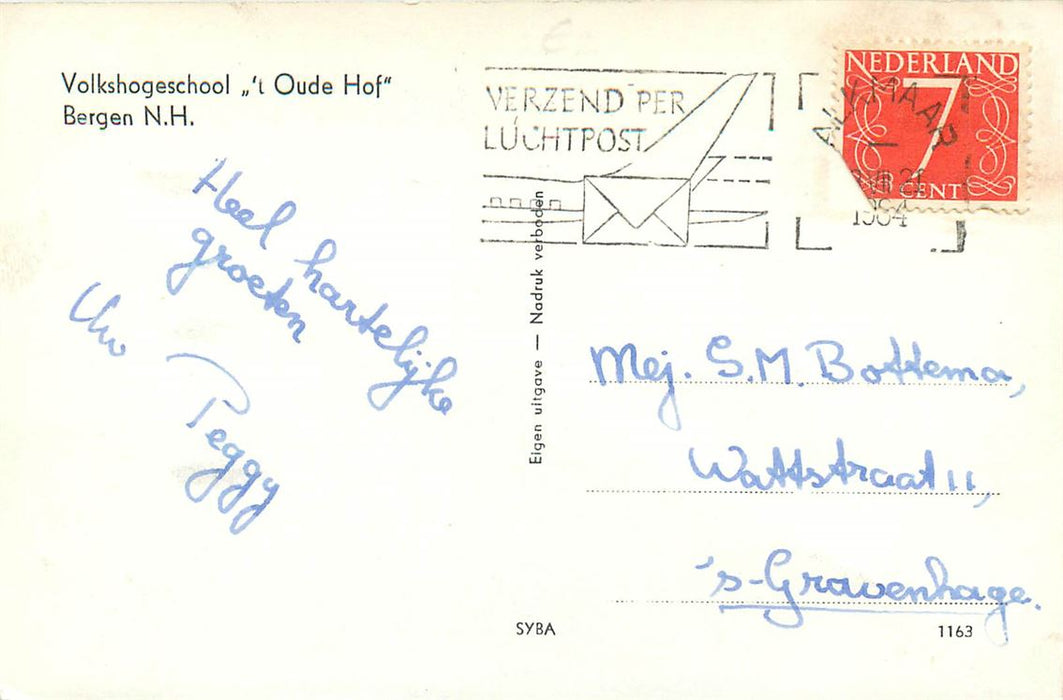 Volkshogeschool „'t Oude Hof"
Bergen N.H.
VERZEND PER
LUCHTPOST
ALKMAAR
1964
NEDERLAND
7
CENT
Heel hartelijke
groeten
Uw Peggy
Eigen uitgave — Nadruk verboden
Mej. S.M. Bottema,
Wattstraat 11,
's-Gravenhage.
SYBA
1163